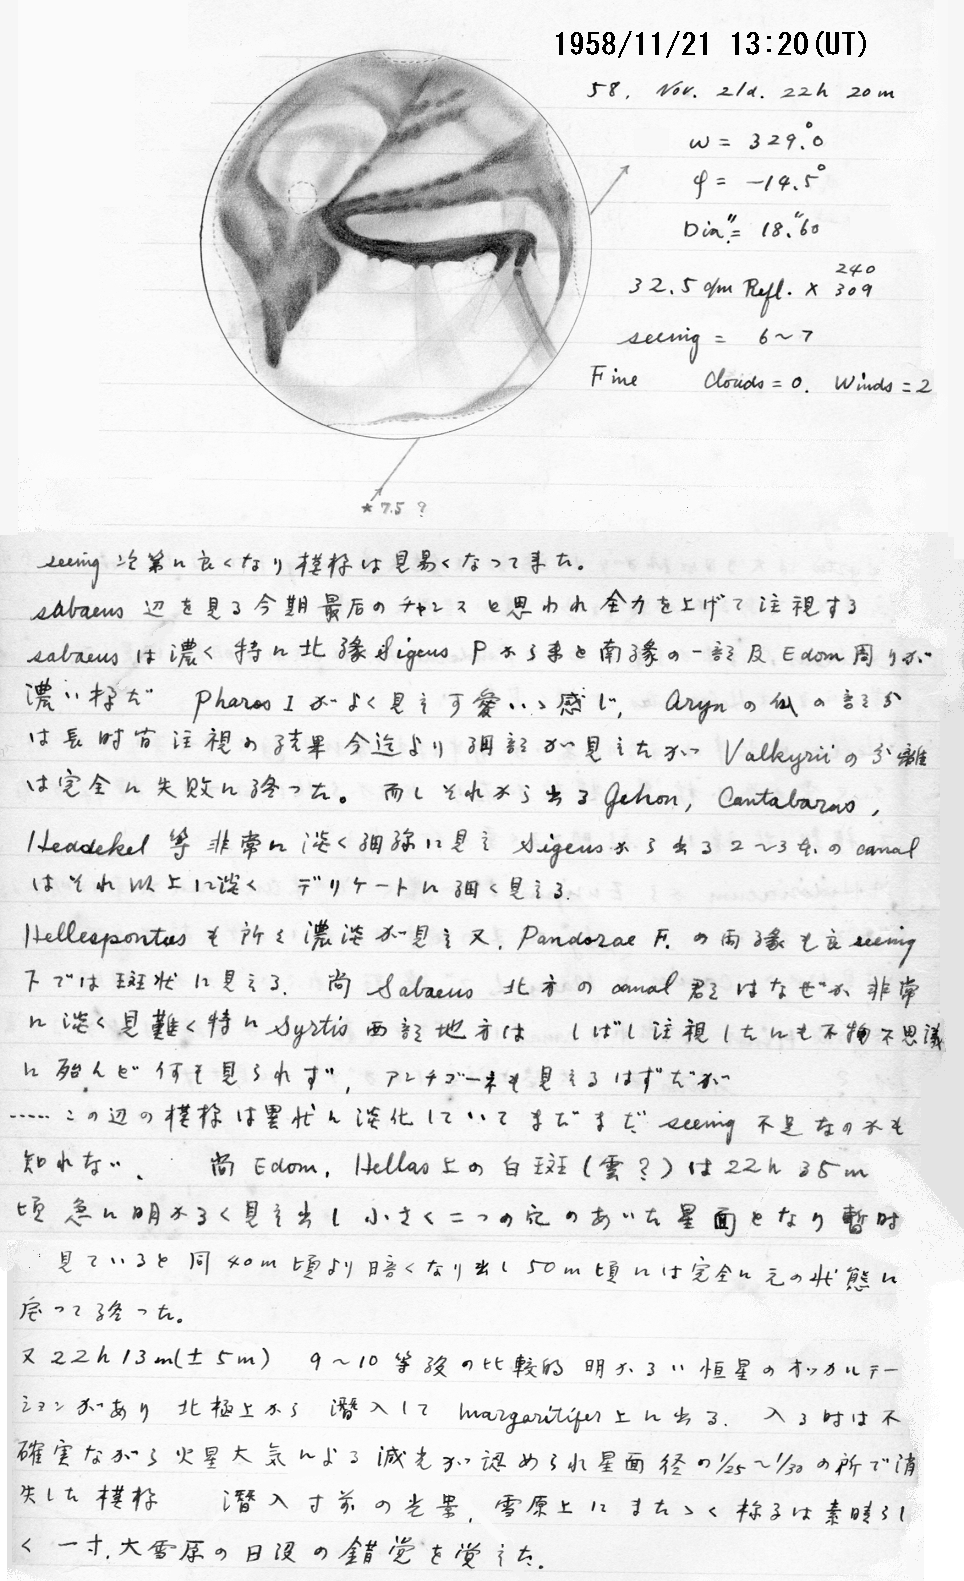 1958/11/21 13:20(UT)
58. Nov. 21d. 22h 20m
ω = 329.°0
φ = -14.5°
Dia. = 18."60
32.5 cm Refl. × 240 309
seeing = 6～7
Fine Clouds = 0. Winds = 2
★ 7.5 ?
seeing 次第に良くなり模様は見易くなって来た。
Sabaeus 辺を見る今期最后のチャンスと思われ全力を上げて注視する
Sabaeus は濃く特に北縁 Sigeus P から東と南縁の一部及 Edom 周りが
濃い様だ Pharos I がよく見え可愛いゝ感じ, Aryn の 部分
は長時間注視の結果今迄より細部が見えたが Valkyrii の分離
は完全に失敗に終った。而しそれから出る Gehon, Cantabaras,
Heddekel 等非常に淡く細かに見え Sigeus から出る2～3本の canal
はそれ以上に淡く デリケートに細く見える.
Hellespontus も所々濃淡が見え又, Pandorae F. の両縁も良 seeing
下では斑状に見える. 尚 Sabaeus 北方の canal 群はなぜか非常
に淡く見難く特に Syrtis 西部地方は しばし注視したにも不拘不思議
に殆んど何も見られず, アンチゴーネも見えるはずだが
..... この辺の模様は異状に淡化していてまだまだ seeing 不足なのかも
知れない. 尚 Edom, Hellas 上の白斑(雲?)は 22h 35m
頃急に明かるく見え出し小さく二つの穴のあいた星面となり暫時
見ていると同40m頃より暗くなり出し50m頃には完全に元の状態に
戻って終った。
又 22h 13m(±5m) 9～10 等級の比較的明かるい恒星のオッカルテー
ションがあり北極上から潜入して Margaritifer 上に出る. 入る時は不
確実ながら火星大気による減光が認められ星面径の1/25～1/30の所で消
失した模様 潜入寸前の光景, 雪原上にまたゝく様子は素晴らし
く一寸,大雪原の日没の錯覚を覚えた.